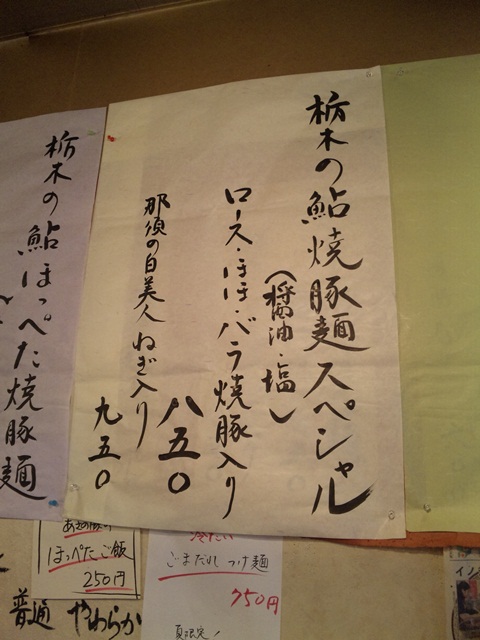 栃木の鮎焼豚麺スペシャル
(醤油・塩)
ロース・ほほ・バラ焼豚入り
八五〇
那須の白美人ねぎ入り
九五〇
栃木の鮎ほっぺた焼豚麺
ほっぺたご飯
250円
冷たい
ごまだれつけ麺
750円
夏限定!
普通 やわらか